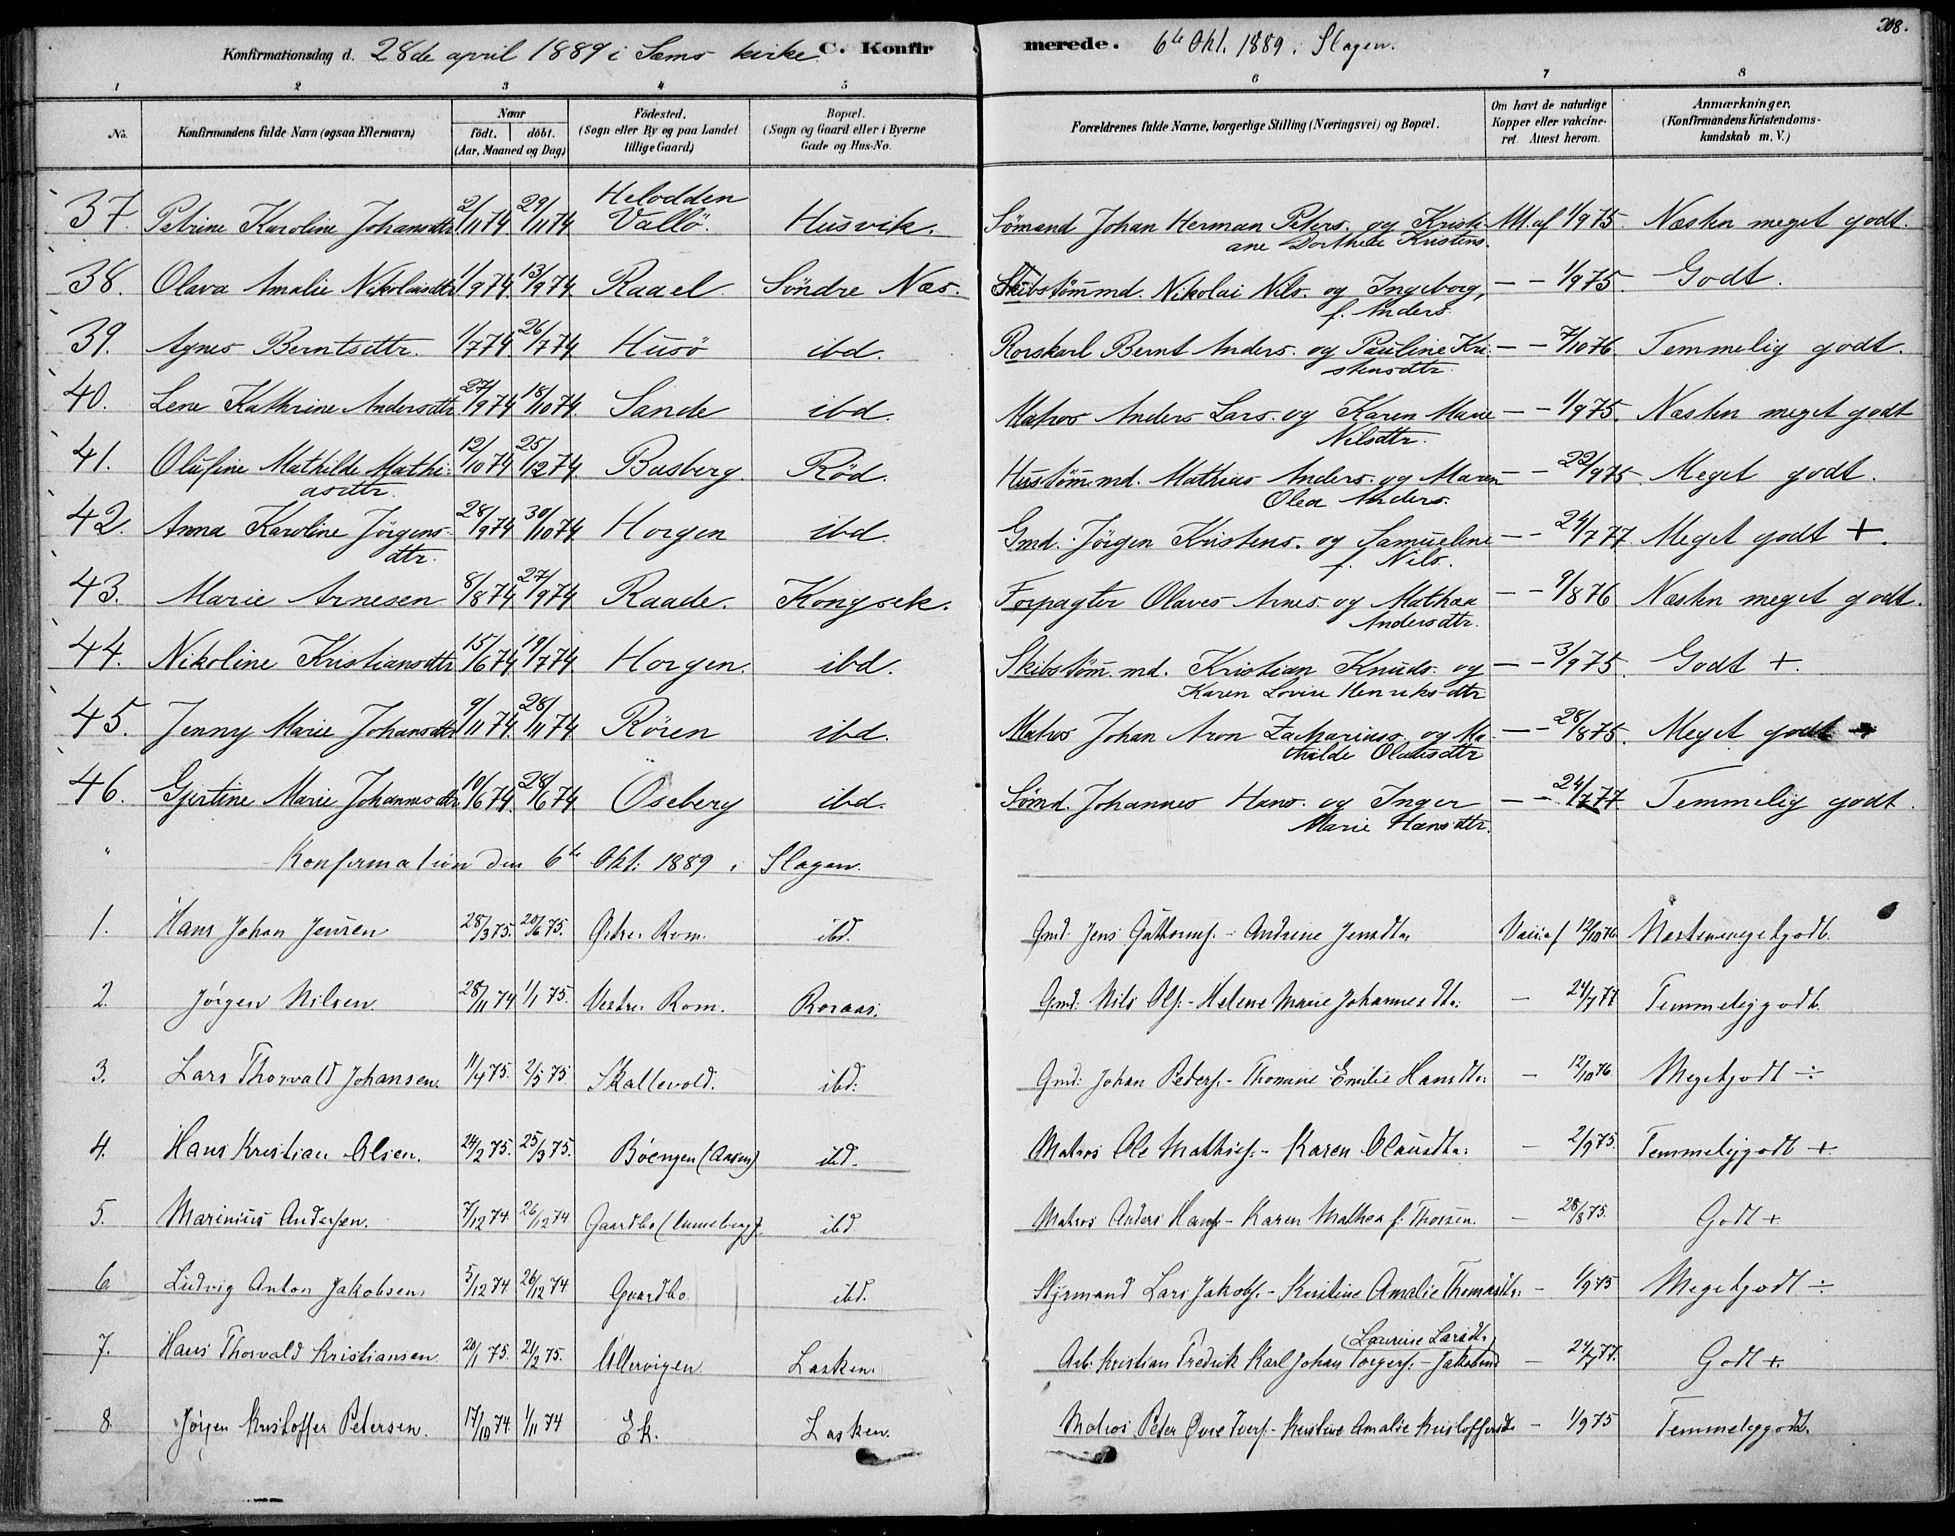 208.
Konfirmationsdag d. 28de april 1889 i Sems kirke. C. Konfirmerede. 6te Okt. 1889 i Slagen.
1 2 3 4 5 6 7 8
No. Konfirmandens fulde Navn (ogsaa Efternavn) Naar født. døbt. (Aar, Maaned og Dag) Fødested. (Sogn eller By og paa Landet tillige Gaard) Bopæl. (Sogn og Gaard eller i Byerne Gade og Hus-No. Forældrenes fulde Navne, borgerlige Stilling (Næringsvei) og Bopæl. Om havt de naturlige Kopper eller vakcineret. Attest herom. Anmærkninger. (Konfirmandens Kristendomskundskab m. V.)
37. Petrine Karoline Johansdtr 2/11 74 29/11 74 Helodden Vallö. Husvik. Sömand Johan Herman Peters. og Kristiane Dorthea Kristens. Att. af 1/9 75. Næsten meget godt.
38. Olava Amalie Nikolaisdtr 1/9 74 13/9 74 Raael Söndre Næs. Skibstömmd. Nikolai Nils. og Ingeborg, f. Anders. — - 1/9 75. Godt.
39. Agnes Berntsdtr. 1/7 74 26/7 74 Husö ibd. Rorskarl Bernt Anders. og Pauline Kristensdtr. — - 7/10 76. Temmelig godt.
40. Lene Kathrine Andersdtr 27/9 74 18/10 74. Sande ibd. Matros Anders Lars. og Karen Marie Nilsdtr. — - 1/9 75. Næsten meget godt
41. Olufine Mathilde Mathiasdtr. 12/10 74 25/12 74. Basberg Röd. Hustömmd. Mathias Anders. og Maren Olea Anders. — - 22/9 75 Meget godt.
42. Anna Karoline Jörgensdtr. 28/9 74 30/10 74. Horgen ibd. Gmd. Jörgen Kristens. og Samueline f. Nils. — - 24/7 77. Meget godt +.
43. Marie Arnesen 8/8 74 27/9 74 Raade. Kongsek. Forpagter Olaves Arnes. og Mathea Andersdtr. — - 9/8 76 Næsten meget godt.
44. Nikoline Kristiansdtr 15/6 74 19/7 74. Horgen. ibd. Skibstöm.md. Kristian Knuds. og Karen Lovise Henriksdtr — - 3/9 75. Godt +.
45. Jenny Marie Johansdtr 9/11 74. 28/11 74 Rören ibd. Matros Johan Aron Zacharias. og Mathilde Olausdtr — - 28/8 75. Meget godt +
46. Gjertine Marie Johannesdtr. 10/6 74. 28/6 74 Oseberg ibd. Sömd. Johannes Hans. og Inger Marie Hansdtr. — - 24/7 77 Temmelig godt.
Konfirmation den 6te Okt. 1889 i Slagen.
1. Hans Johan Jensen 28/3 75. 20/6 75. Østre Rom. ibd. Gmd. Jens Guttormf. - Andrine Jensdtr. Vacc. af 12/10 76. Næsten meget godt.
2. Jørgen Nilsen 28/11 74 1/1 75. Vestre Rom. Roraas. Gmd. Nils Olf. - Helene Marie Johannesdtr. — 24/7 77 Temmelig godt.
3. Lars Thorvald Johansen 11/4 75. 2/5 75 Skallevold. ibd. Gmd. Johan Pederf. - Thomine Emilie Hansdtr. — 12/10 76. Meget godt ÷
4. Hans Kristian Olsen. 24/2 75. 25/3 75. Böengen (Aasen) ibd. Matros Ole Mathisf. - Karen Olausdtr. — 2/9 75. Temmelig godt +
5. Marinius Andersen. 7/12 74 26/12 74 Gaardbo ibd Matros Anders Hansf. - Karen Mathea f. Thorsen. — 28/8 75. Godt +
6. Ludvig Anton Jakobsen 5/12 74 26/12 74 Gaardbo ibd. Styrmand Lars Jakobf. - Kristine Amalie Thomasdtr. — 1/9 75 Meget godt ÷
7. Hans Thorvald Kristiansen 20/1 75. 21/2 75. Ullervigen Lasken. Arb. Kristian Fredrik Karl Johan Torgersf. - Jakobine (Laurine Larsdtr) — 24/7 77. Godt +
8. Jørgen Kristoffer Petersen. 17/10 74. 1/11 74 Ek. Lasken. Matros Peter Ivers. - Kristine Amalie Kristoffersdtr — 1/9 75 Temmelig godt.